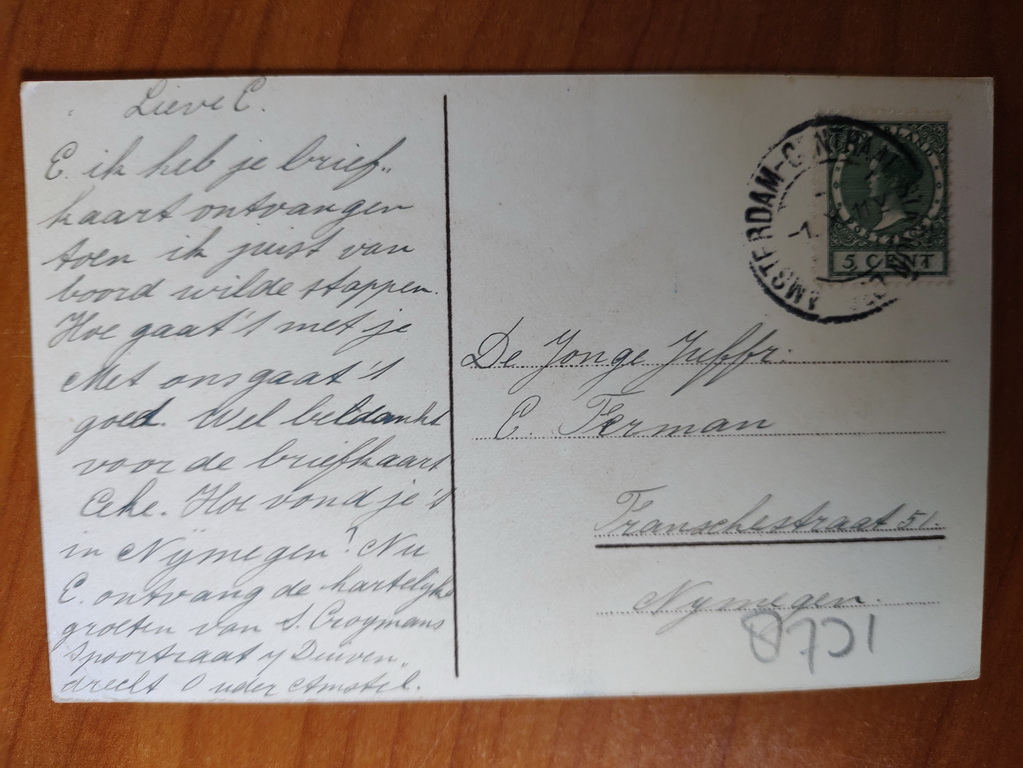 Lieve C.
C. ik heb je brief„
kaart ontvangen
toen ik juist van
boord wilde stappen.
Hoe gaat 't met je
Met ons gaat 't
goed. Wel beldankt
voor de briefkaart
Hoe vond je 't
in Nijmegen? Nu
C. ontvang de hartelijke
groeten van S. Croymans
Spoortraat Duiven„
drecht Ouder Amstel.
AMSTERDAM-CENTRAAL
5 CENT
De Jonge Juffr.
C. Terman
Franschestraat 51.
Nymegen.